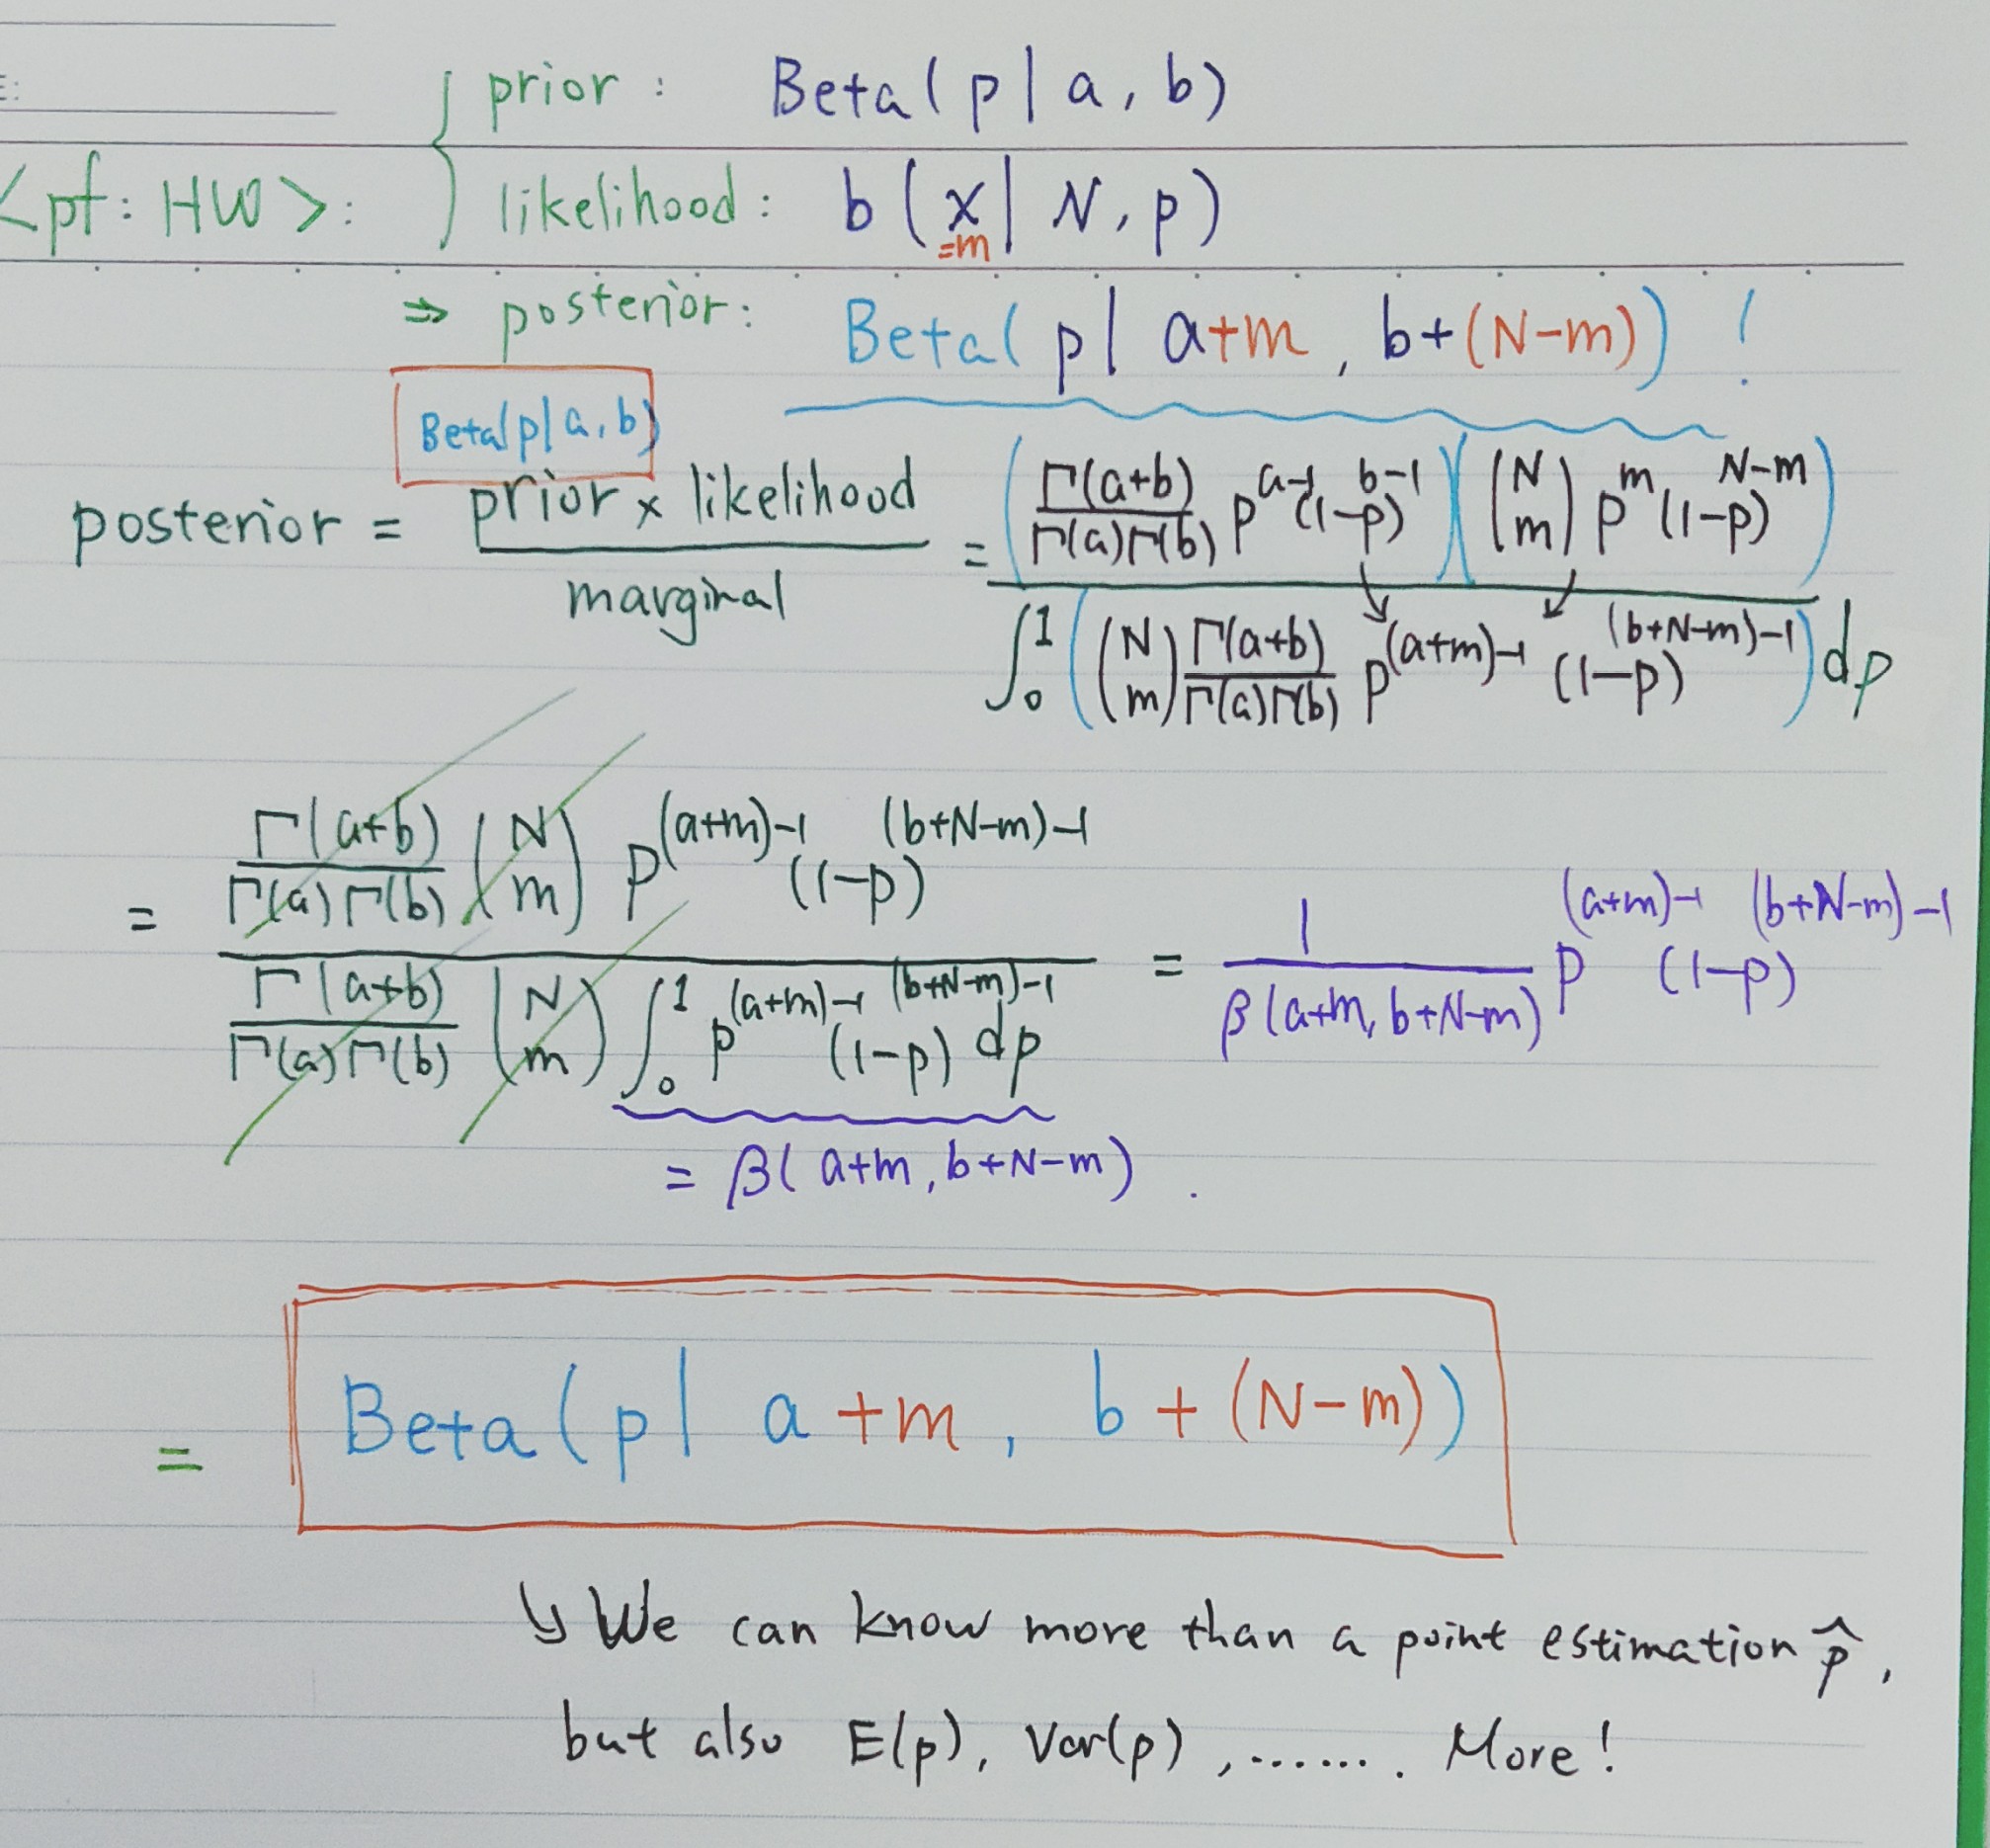 E:
prior : Beta( p | a , b )
<pf: HW>: likelihood : b ( x | N, p )
=m
⇒ posterior: Beta( p | a+m , b+(N-m) ) !
Beta(p|a,b)
posterior = \frac{prior × likelihood}{marginal} = \frac{(\frac{Γ(a+b)}{Γ(a)Γ(b)} p^{a-1} (1-p)^{b-1}) (\binom{N}{m} p^{m} (1-p)^{N-m})}{∫_0^1 (\binom{N}{m} \frac{Γ(a+b)}{Γ(a)Γ(b)} p^{(a+m)-1} (1-p)^{(b+N-m)-1}) dp}
= \frac{\frac{Γ(a+b)}{Γ(a)Γ(b)} \binom{N}{m} p^{(a+m)-1} (1-p)^{(b+N-m)-1}}{\frac{Γ(a+b)}{Γ(a)Γ(b)} \binom{N}{m} ∫_0^1 p^{(a+m)-1} (1-p)^{(b+N-m)-1} dp} = \frac{1}{β(a+m, b+N-m)} p^{(a+m)-1} (1-p)^{(b+N-m)-1}
= β( a+m , b+N-m ) .
= Beta( p | a+m , b+(N-m) )
↳ We can know more than a point estimation p̂ ,
but also E(p), Var(p) , ....... More !